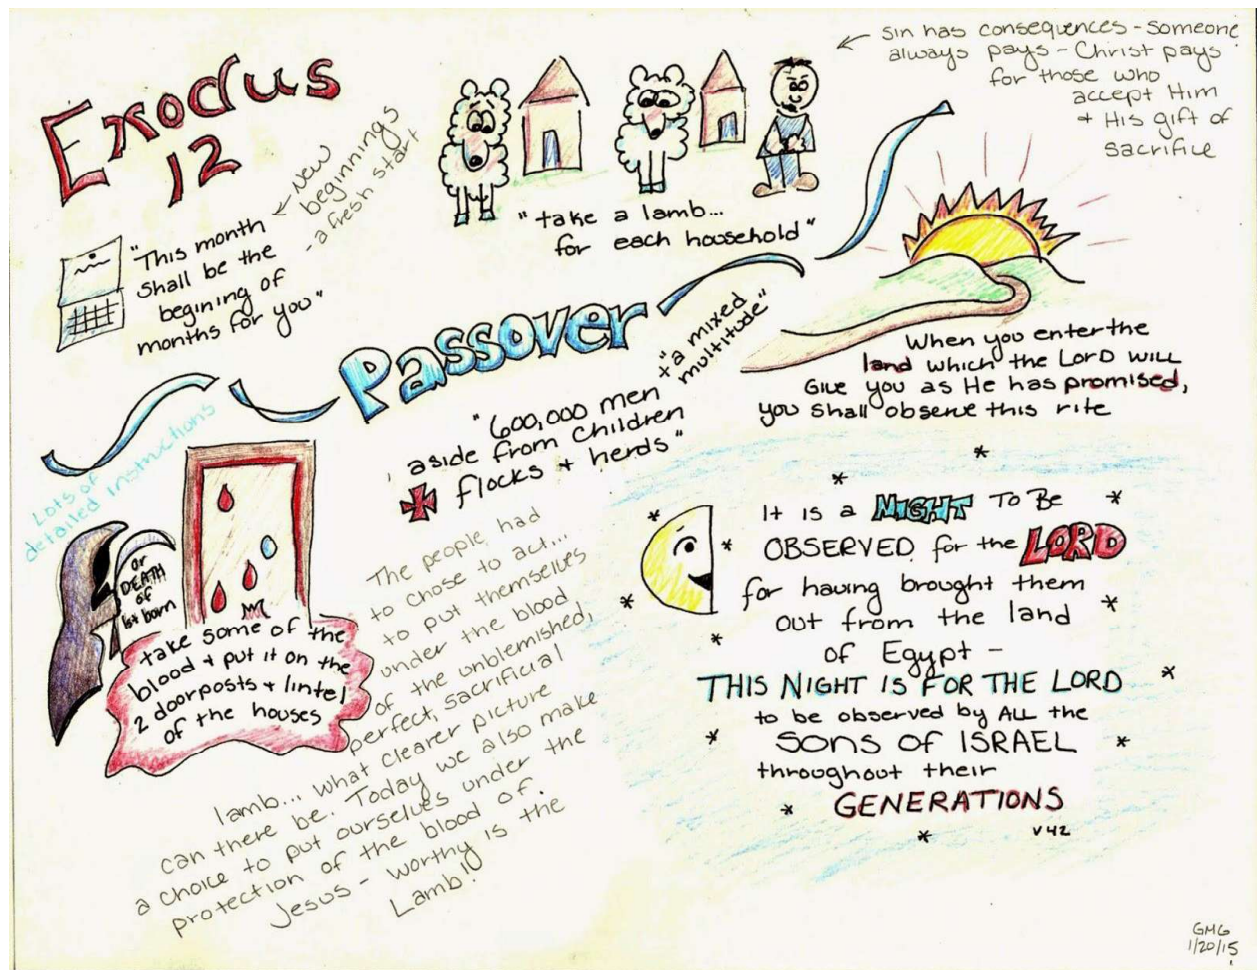 Exodus
12
← New
beginnings
- a fresh start
"This month
shall be the
begining of
months for you"
"take a lamb...
for each household"
sin has consequences - someone
always pays - Christ pays
for those who
accept Him
+ His gift of
sacrifice
Passover
When you enter the
land which the LORD will
Give you as He has promised,
you shall observe this rite
"600,000 men
aside from children
flocks + herds"
+ "a mixed
multitude"
Lots of
detailed instructions
or
DEATH
of
1st born
take some of the
blood + put it on the
2 doorposts + lintel
of the houses
The people had
to chose to act...
to put themselves
under the blood
of the unblemished,
perfect, sacrificial
lamb... what clearer picture
can there be. Today we also make
a choice to put ourselves under the
protection of the blood of.
Jesus - worthy is the
Lamb!
It is a NIGHT TO BE
OBSERVED for the LORD
for having brought them
out from the land
of Egypt -
THIS NIGHT IS FOR THE LORD
to be observed by ALL the
SONS OF ISRAEL
throughout their
GENERATIONS
v 42
GMG
1/20/15